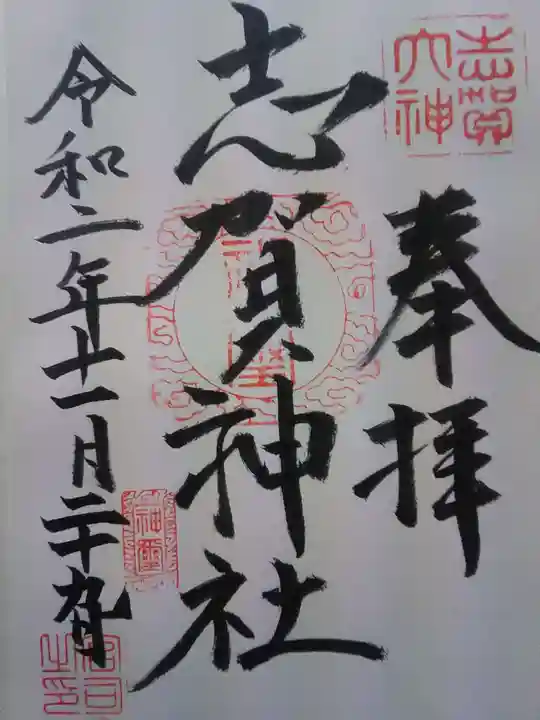 奉拝
志賀大神
志賀神社
令和二年十一月二十九日
神璽
宮司之印